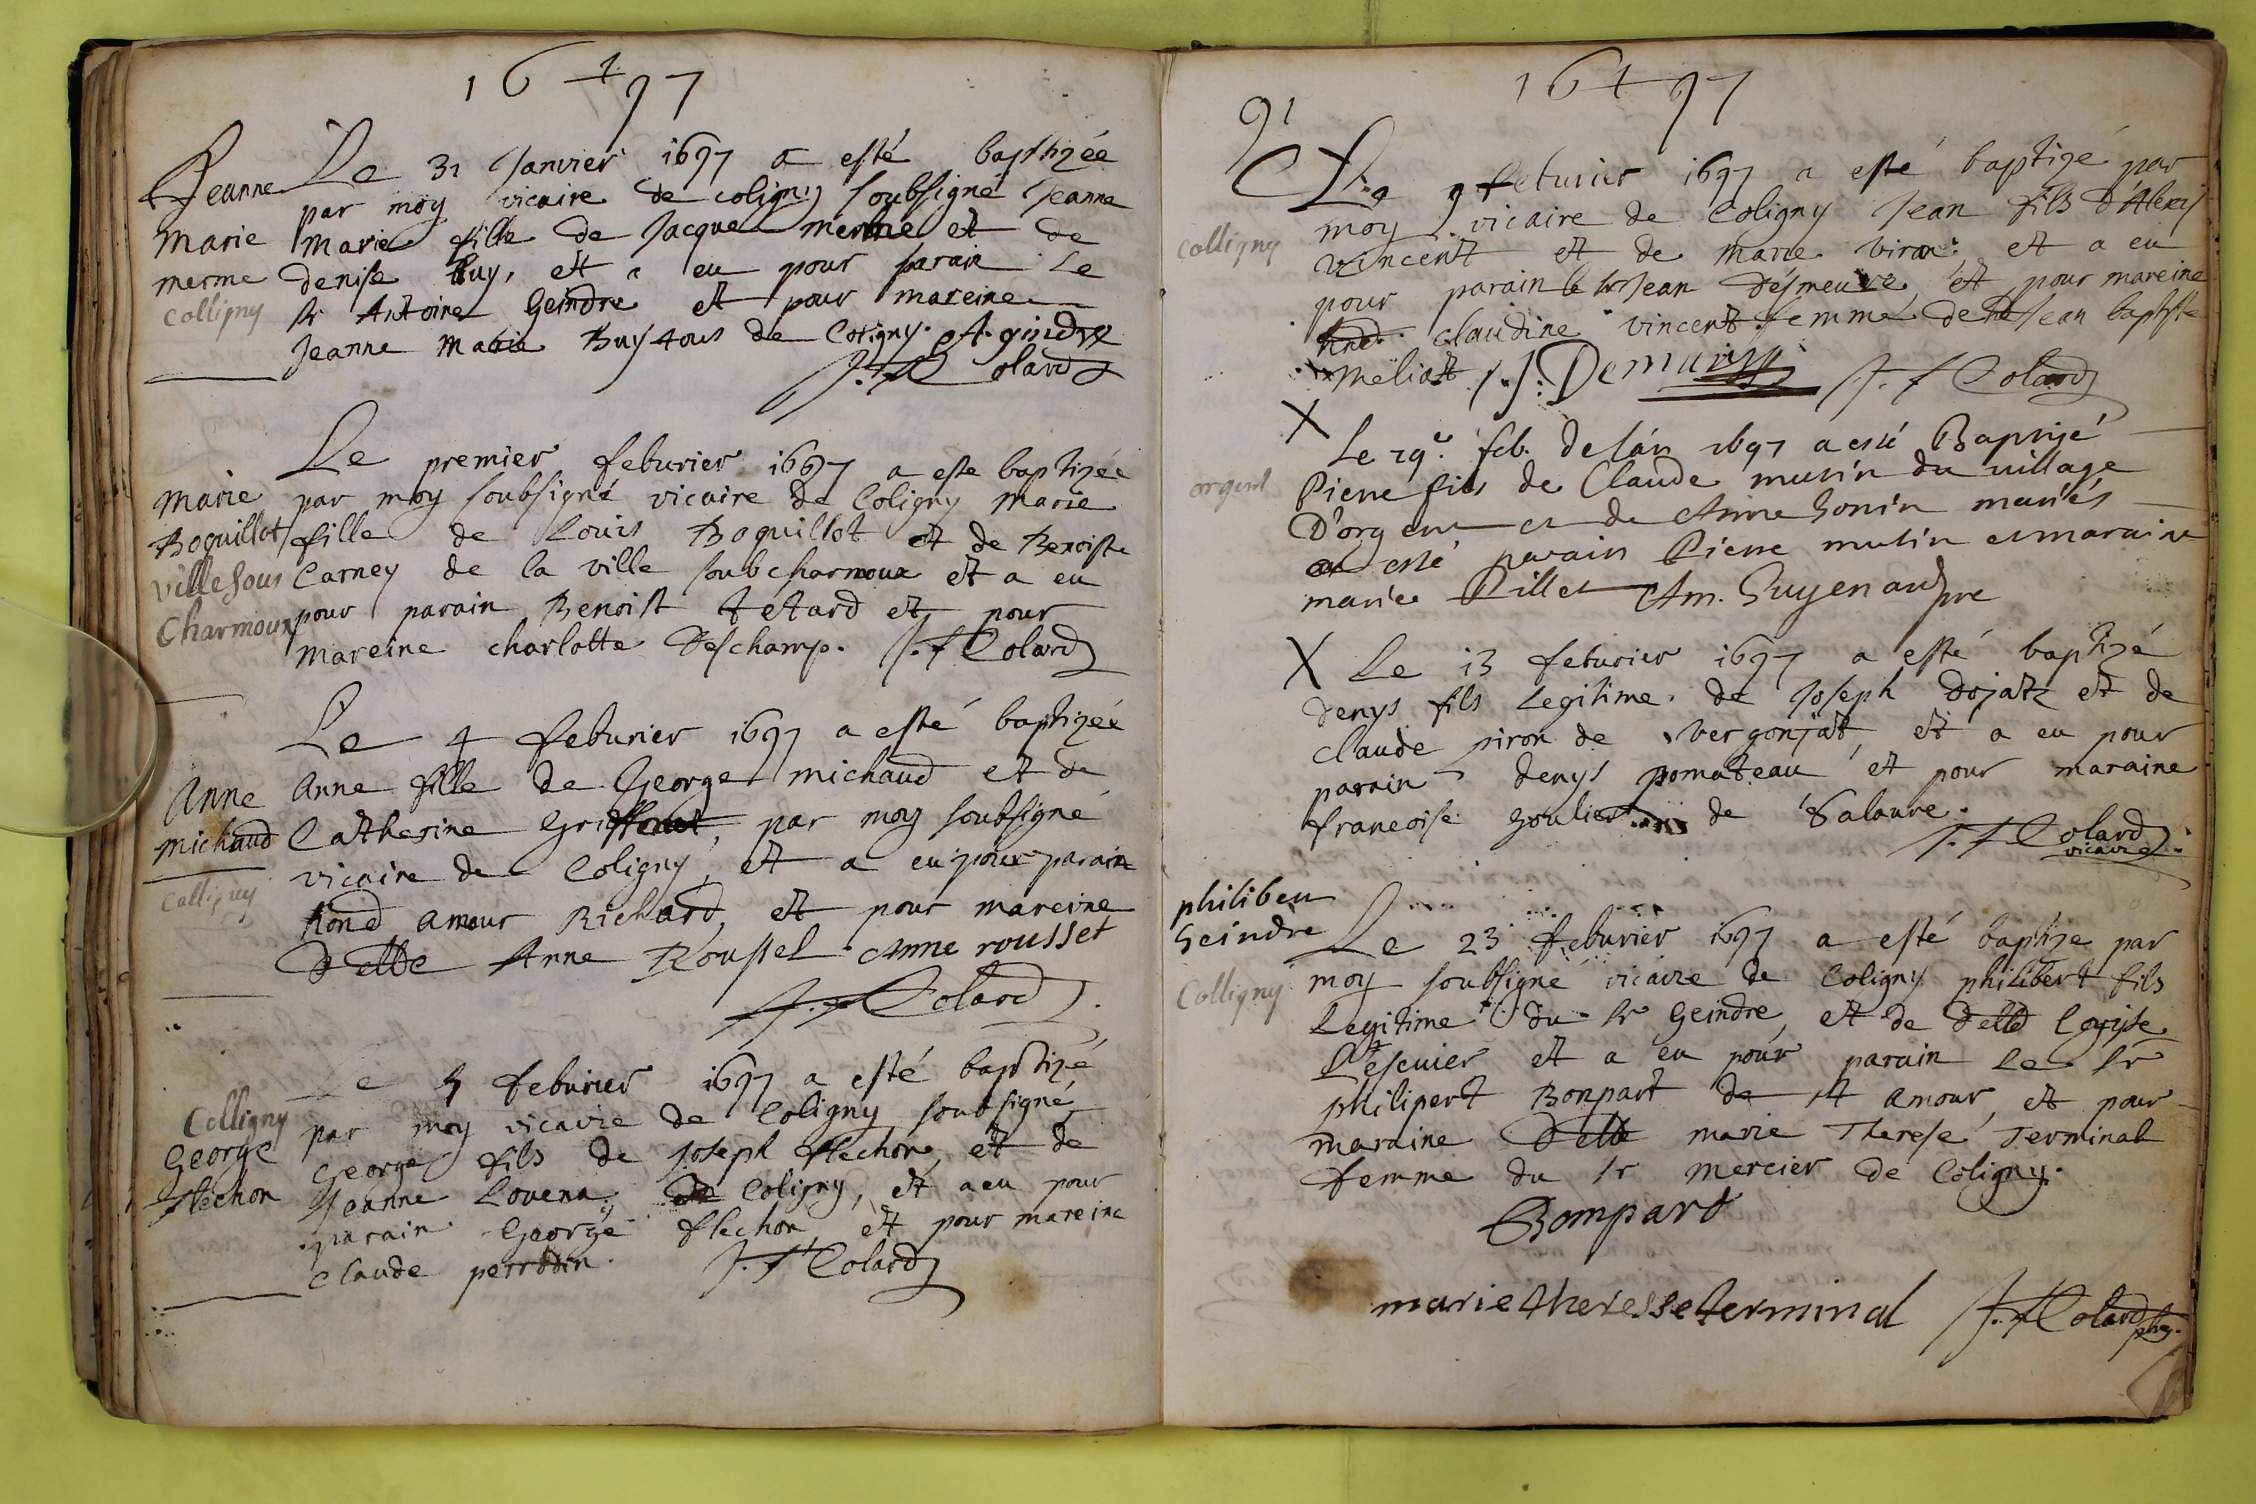 16+97
Jeanne Le 31 Janvier 1697 a esté baptizée
par moy vicaire de coligny soubsigné Jeanne
Marie Marie fille de Jacque merme et de
merme denise Buy, et a eu pour parain le
Colligny Sr Antoine Geindre et pour mareine
Jeanne Marie Buy tous de Coligny. A. gindre
J. F. Colard
Le premier feburier 1697 a esté baptizée
Marie par moy soubsigné vicaire de Coligny Marie
Boquillot fille de Louis Boquillot et de Benoiste
ville sous Carney de la ville soub charmoux et a eu
Charmoux pour parain Benoist tétard et pour
mareine charlotte Deschamp. J. F. Colard
Le 4 feburier 1697 a esté baptizée
Anne Anne fille de George michaud et de
michaud Catherine , par moy soubsigné
vicaire de Coligny, et a eu pour parain
Colligny hond amour Richard, et pour mareine
Delle Anne Roussel. Anne rousset
J. F. Colard
Le 5 feburier 1697 a esté baptizé
Colligny par moy vicaire de Coligny soubsigné
George George fils de Joseph flechon, et de
flechon Jeanne Louena, de Coligny, et a eu pour
parain George flechon et pour mareine
Claude perrodin. J. F. Colard
16+97
91
Le 9 feburier 1697 a esté baptizé par
moy vicaire de Coligny Jean fils d'Alexis
Colligny vincent et de marie viron, et a eu
pour parain le Sr Jean Desmeure, et pour mareine
claudine vincent femme de Jean baptiste
meliat J. Demurs J. F. Colard
X
Le 19e. feb. de lán 1697 a esté Baptisé
orgent Pierre fils de Claude mutin du village
D'orgent et de Anne Gonin mariés
a esté parain Pierre mutin et maraine
marie Pillet Am. Guyenard pre
X Le 13 feburier 1697 a esté baptizé
denys fils Legitime de Joseph dojatz et de
claude piron de vergonjat, et a eu pour
parain denys pomateau et pour maraine
francoise goulier de Salaure.
J. F. Colard
vicaire
philibert
Geindre Le 23 feburier 1697 a esté baptize par
Colligny moy soubsigné vicaire de Coligny philibert fils
Legitime du Sr Geindre, et de Delle Loyise
L'éscuier et a eu pour parain Le Sr
philipert Bonpart de st amour, et pour
maraine Delle marie Therese Terminal
femme du Sr Mercier de Coligny.
Bompard
marie theresse terminal J. F. Colard